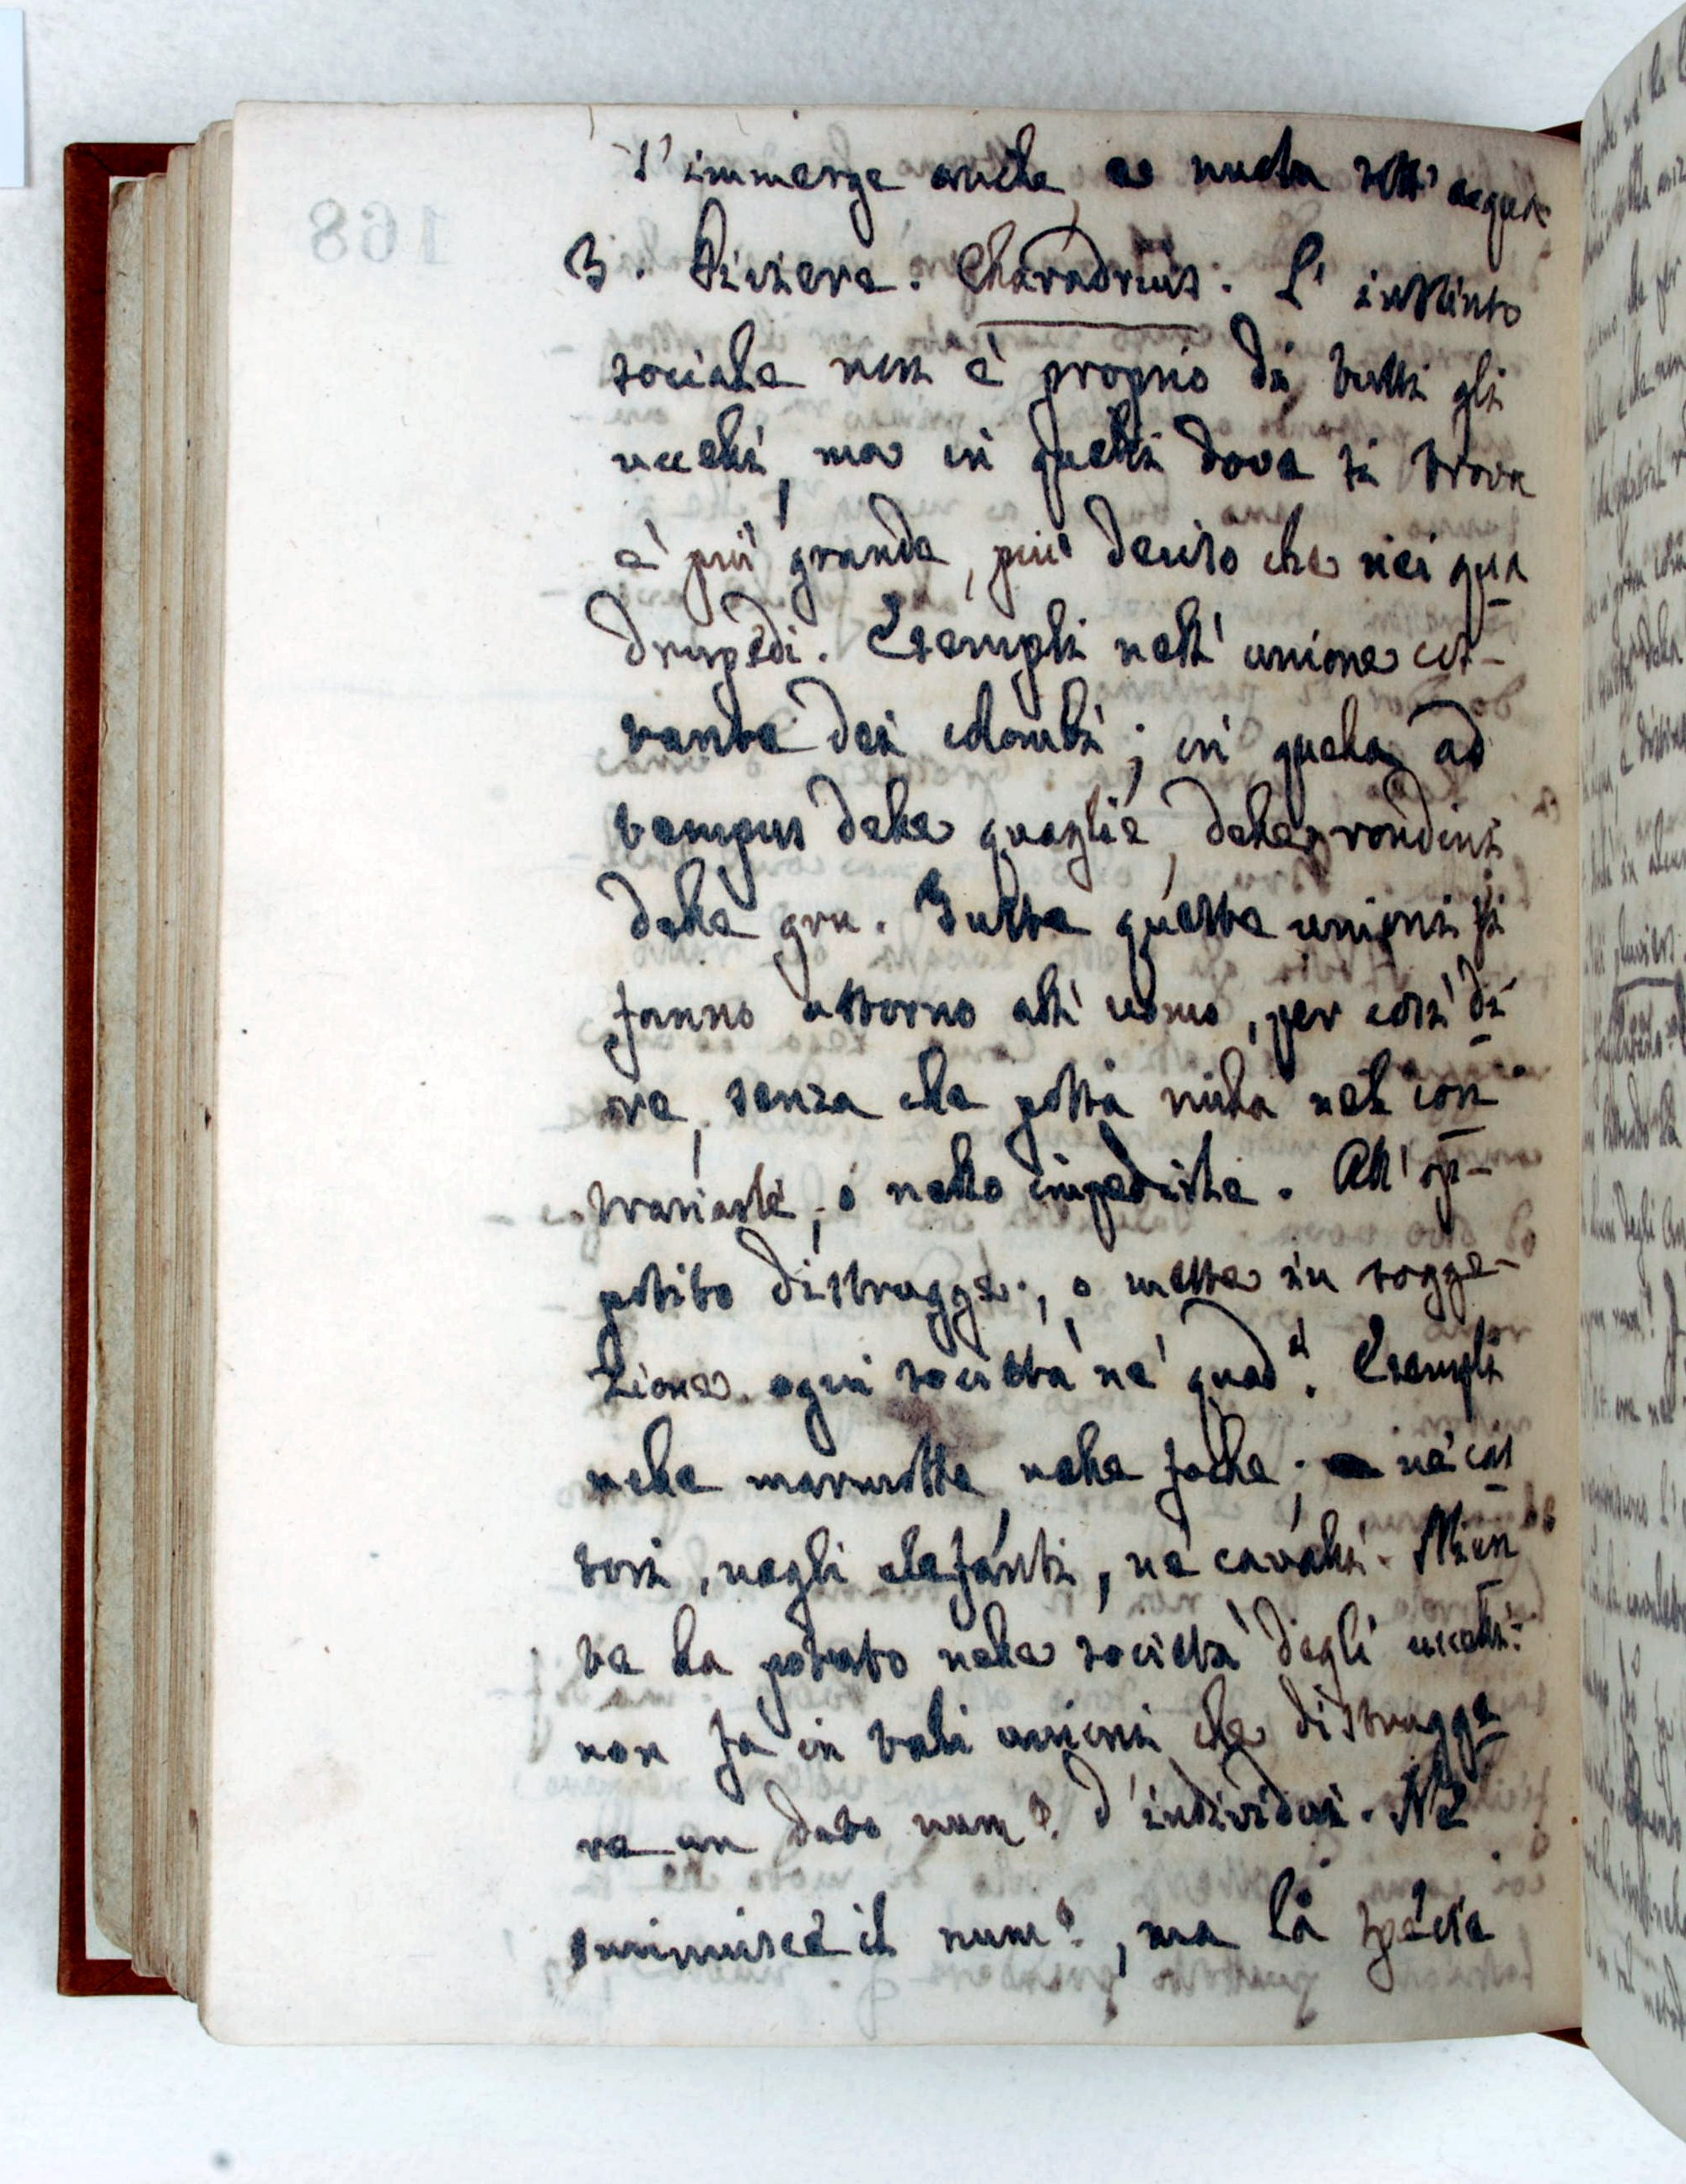 S'immerge anche e nuota sott'acqua
3. Piviere. Charadrius. L'instinto
sociale non è proprio di tutti gli
uccelli, ma in quelli dove si trova
è più grande, più deciso che nei qua
drupedi. Esempli nell'unione cos-
tante dei colombi; in quella ad
tempus delle quaglie, delle rondini
delle gru. Tutte queste unioni si
fanno attorno all'uomo, per così di
re, senza che possa nulla nel con
trariarle, o nello impedirle. All'op-
posito distrugge, o mette in sogge-
zione ogni società ne' quad.i Esempli
nelle marmotte, nelle foche; ne' cas
tori, negli elefanti, ne' cavalli. Nien
te ha potuto nelle società degli uccelli:
non fa in tali unioni che distrugge
re un dato num.o d'individui. Ne
sminuisce il num.o, ma la specie
168